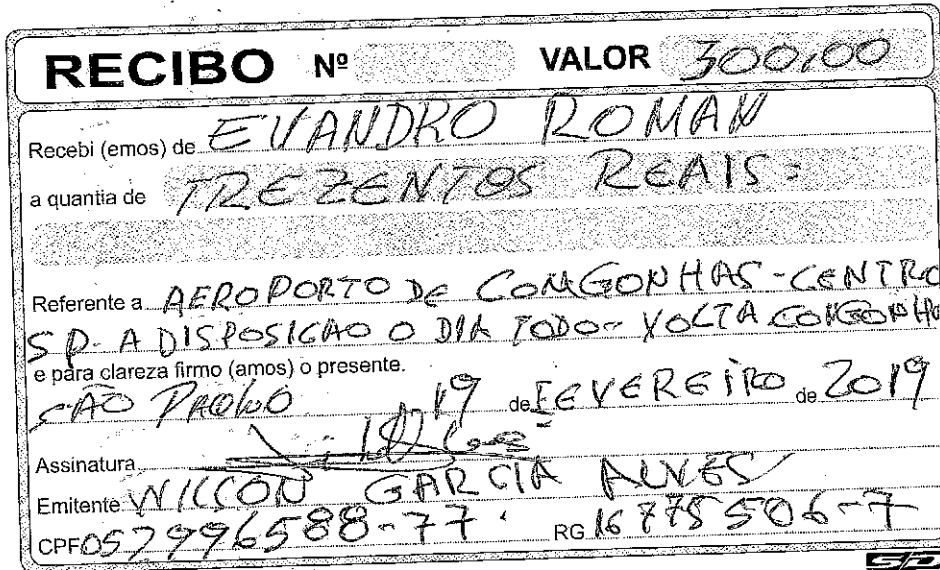 RECIBO Nº VALOR 300,00
Recebi (emos) de EVANDRO ROMAN
a quantia de TREZENTOS REAIS =
Referente a AEROPORTO DE CONGONHAS - CENTRO
SP. A DISPOSIGAO O DIA TODO - VOLTA CONGONHA
e para clareza firmo (amos) o presente.
SÃO PAULO 19 de FEVEREIRO de 2019
Assinatura
Emitente WILSON GARCIA ALVES
CPF 052996588-77 RG 16 775 506-7
SD